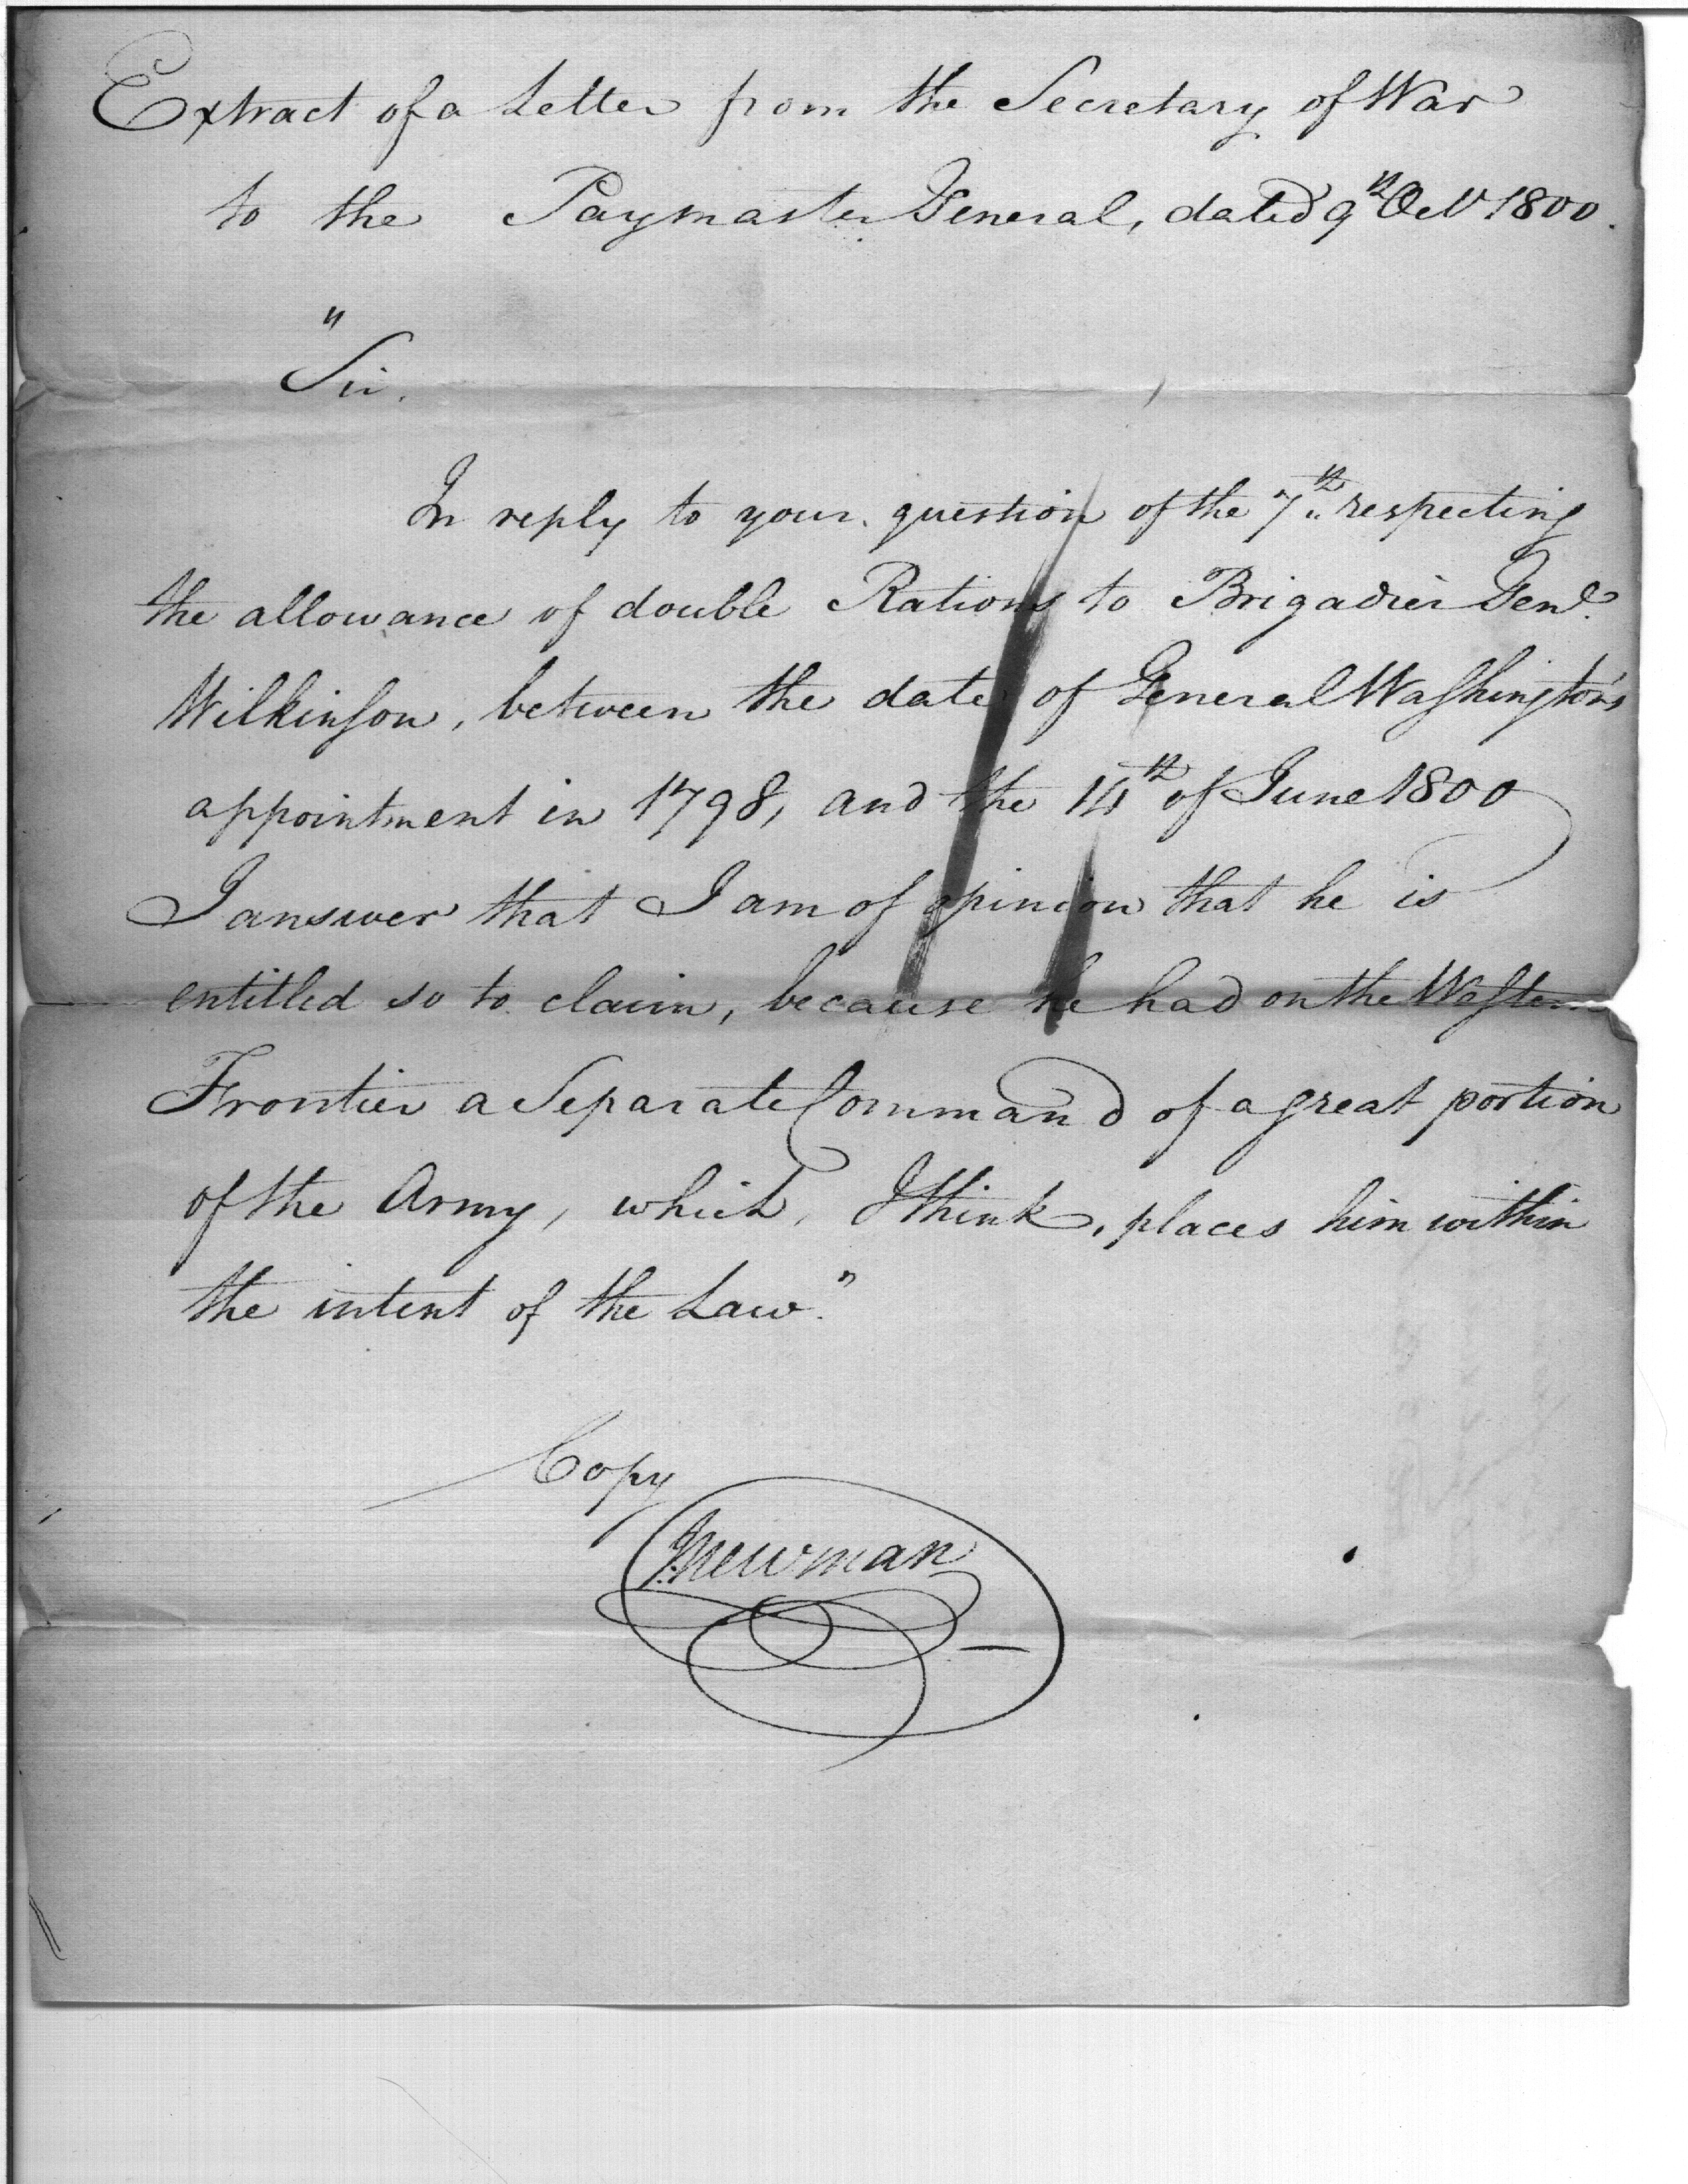 Extract of a Letter from the Secretary of War
to the Paymaster General, dated 9th Oct 1800.
"Sir.
In reply to your question of the 7th respecting
the allowance of double Rations to Brigadier Genl.
Wilkinson, between the date of General Washington's
appointment in 1798, and the 14th of June 1800
I answer that I am of opinion that he is
entitled so to claim, because he had on the Western
Frontier a Separate Command of a great portion
of the Army, which, I think, places him within
the intent of the Law."
Copy
J. Newman